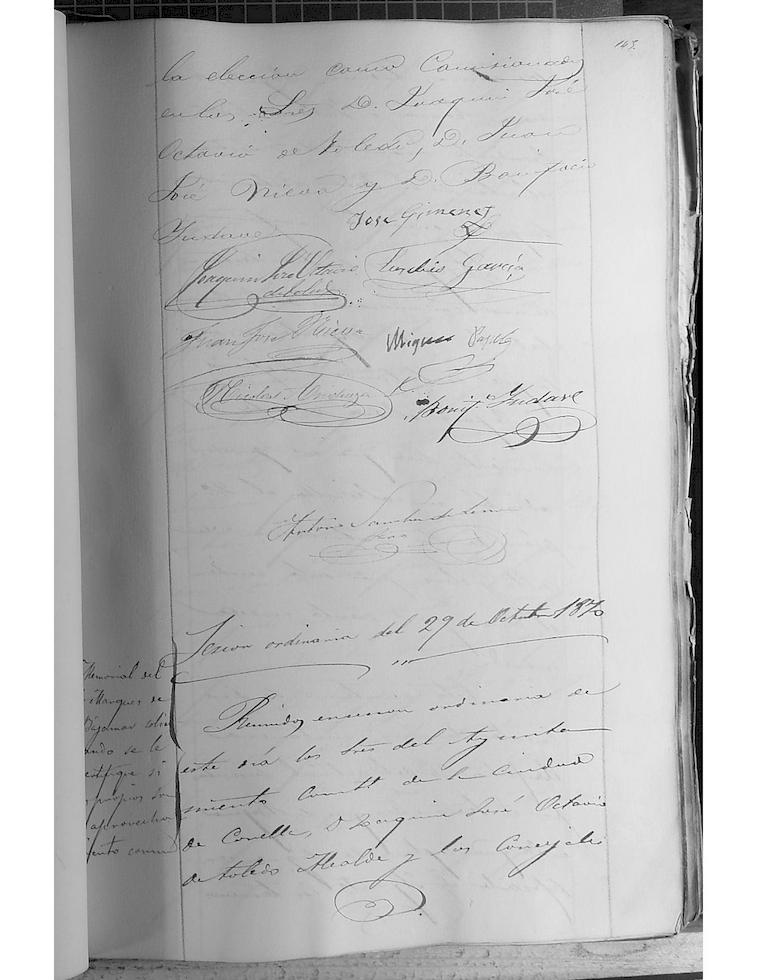 143.
la eleccion como Comisionados
en los Sres D. Joaquin José
Octavio de Toledo, D. Juan
José Nicua y D. Bonifacio
Yudave
Jose Gimenez
Joaquin José Octavio
de Toledo
Eusebio García
Juan José
Miguel
Nicolas
Bonif. Yudave
Antonio Sanchez de
Sesion ordinaria del 29 de Octubre 1870
Memorial del
Marques de
Bajamar soli
ando se le
ertifique si
propios son
aprovecha
iento comun
Reunidos en sesion ordinaria de
este dia los Sres del Ayunta
miento Constl de la Ciudad
de Corella, D Joaquin José Octavio
de Toledo Alcalde y los Concejales